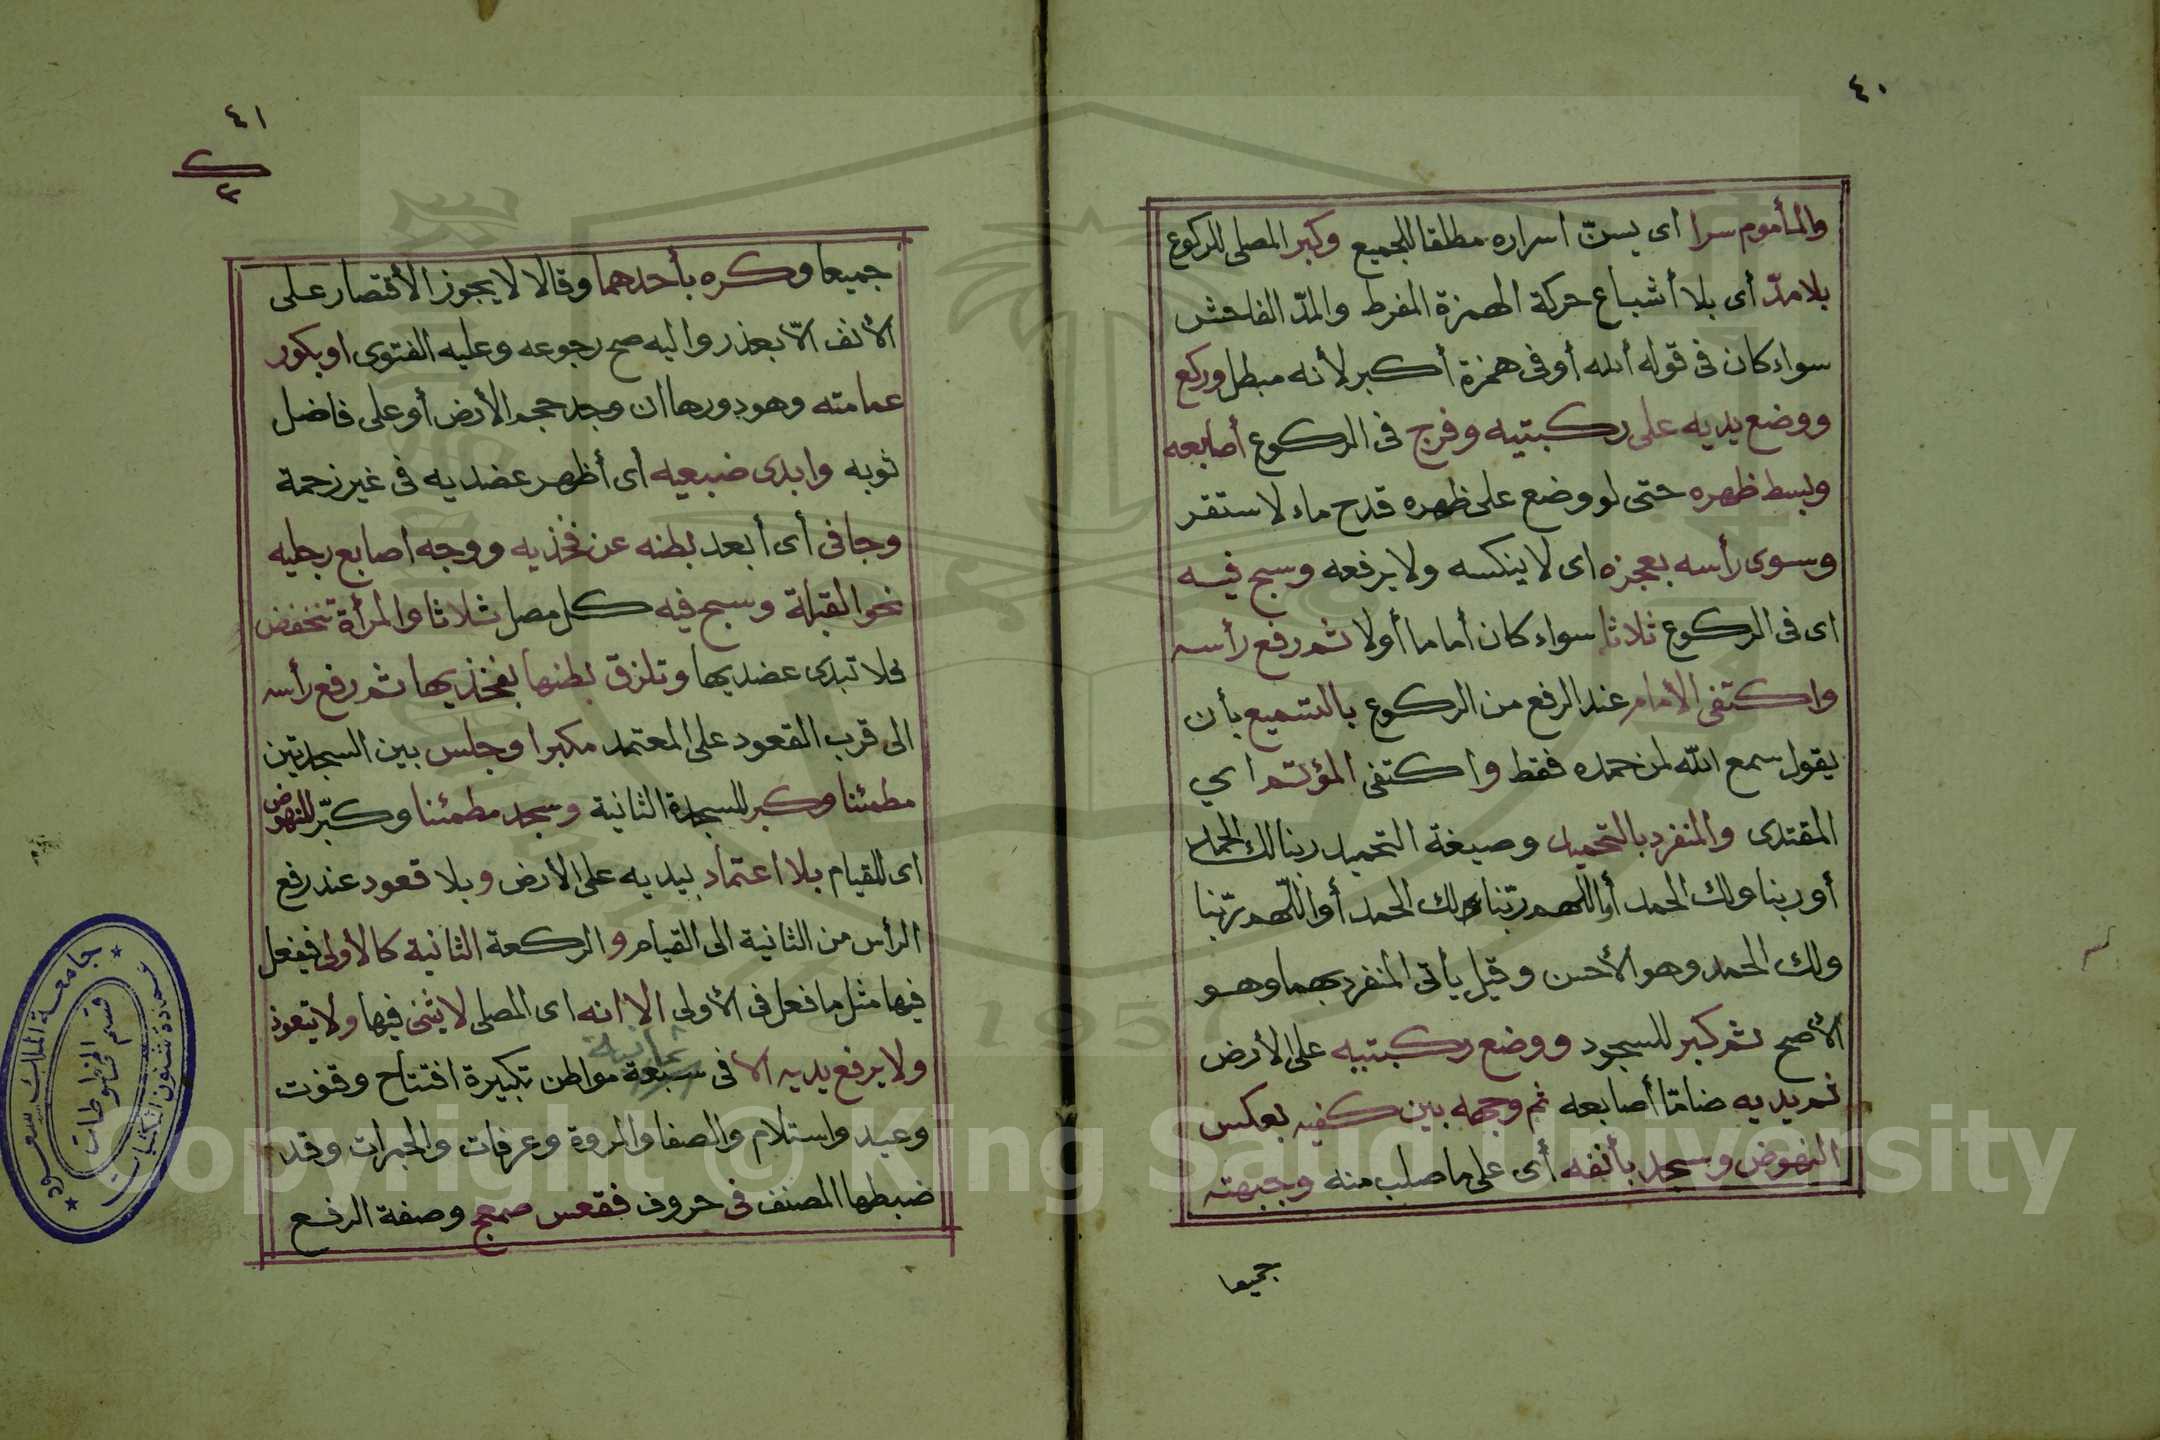 ٤٠
والمأموم سرا اى يسنّ اسراره مطلقا للجميع وكبر المصلى للركوع
بلا مدّ أى بلا أشباع حركة الهمزة المفرط والمدّ الفاحش
سواء كان فى قوله ألله أو فى همزة أكبر لأنه مبطل وركع
ووضع يديه على ركبتيه وفرج فى الركوع أصابعه
وبسط ظهره حتى لو وضع على ظهره قدح ماء لاستقر
وسوى رأسه بعجزه اى لا ينكسه ولا يرفعه وسبح فيه
اى فى الركوع ثلاثا سواء كان أماما أولا ثم رفع رأسه
واكتفى الأمام عند الرفع من الركوع بالتسميع بأن
يقول سمع الله لمن حمده فقط واكتفى المؤتم اي
المقتدى والمنفرد بالتحميد وصيغة التحميد ربنا لك الحمد
أو ربنا ولك الحمد أو اللهم ربّنا لك الحمد أو اللّهم ربّنا
ولك الحمد وهو الأحسن وقيل يأتى المنفرد بهما وهو
الأصح ثم كبر للسجود ووضع ركبتيه على الأرض
ثم يديه ضامّا أصابعه ثم وجهه بين كفيه بعكس
النهوض وسجد بأنفه أى على ما صلب منه وجبهته
جميعا
٤١
٣
جميعا وكره بأحدهما وقالا لا يجوز الأقتصار على
الأنف الّا بعذر واليه صح رجوعه وعليه الفتوى او بكور
عمامته وهو دورها ان وجد حجم الأرض أو على فاضل
ثوبه وابدى ضبعيه أى أظهر عضديه فى غير زحمة
وجافى أى أبعد بطنه عن فخذيه ووجه اصابع رجليه
نحو القبلة وسبح فيه كل مصل ثلاثا والمرأة تنخفض
فلا تبدى عضديها وتلزق بطنها بفخذيها ثم رفع رأسه
الى قرب القعود على المعتمد مكبرا وجلس بين السجدتين
مطمئنا وكبر للسجدة الثانية وسجد مطمئنا وكبّر للنهوض
اى للقيام بلا اعتماد بيديه على الأرض وبلا قعود عند رفع
الرأس من الثانية الى القيام والركعة الثانية كالأولى فيفعل
فيها مثل ما فعل فى الأولى الا انه اى المصلى لا يثنى فيها ولا يتعوذ
ثمانية
ولا يرفع يديه الا فى سبعة مواطن تكبيرة افتتاح وقنوت
وعيد واستلام والصفا والمروة وعرفات والجمرات وقد
ضبطها المصنف فى حروف فقعس صمعج وصفة الرفع
جامعة الملك سعود
قسم المخطوطات
عمادة شئون المكتبات
1957
Copyright © King Saud University